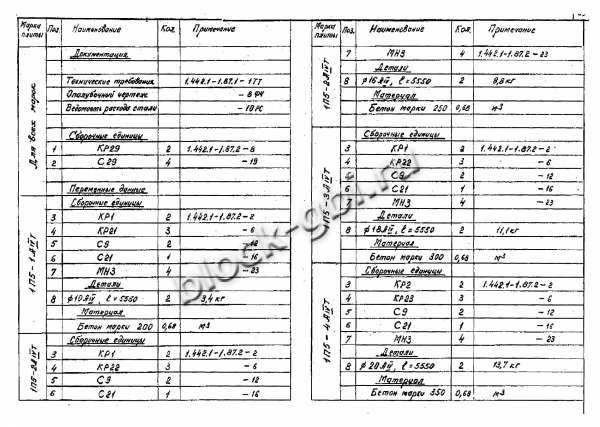 Марка плиты Поз. Наименование Кол. Примечание
Для всех марок
Документация
Технические требования 1.442.1-1.87.1-1ТТ
Опалубочный чертеж
Ведомость расхода стали -10РС
Сборочные единицы
1 КР29 2 1.442.1-1.87.2-8
2 С29 4 -19
Переменные данные
1П5-1АIIIТ
Сборочные единицы
3 КР1 2 1.442.1-1.87.2-2
4 КР21 3 -6
5 С9 2 -12
6 С21 1 -16
7 МН3 4 -23
Детали
8 ф10АIII, ℓ=5550 2 3,4 кг
Материал
Бетон марки 200 0,68 м³
Сборочные единицы
3 КР1 2 1.442.1-1.87.2-2
4 КР22 3 -6
5 С9 2 -12
6 С21 1 -16
Марка плиты Поз. Наименование Кол. Примечание
7 МН3 4 1.442.1-1.87.2-23
Детали
8 ф16АIII, ℓ=5550 2 8,8 кг
Материал
Бетон марки 250 0,68 м³
1П5-3АIIIТ
Сборочные единицы
3 КР1 2 1.442.1-1.87.2-2
4 КР22 3 -6
5 С9 2 -12
6 С21 1 -16
7 МН3 4 -23
Детали
8 ф18АIII, ℓ=5550 2 11,1 кг
Материал
Бетон марки 300 0,68 м³
1П5-4АIIIТ
Сборочные единицы
3 КР2 2 1.442.1-1.87.2-2
4 КР23 3 -6
5 С9 2 -12
6 С21 1 -16
7 МН3 4 -23
Детали
8 ф20АIII, ℓ=5550 2 13,7 кг
Материал
Бетон марки 350 0,68 м³
block-gbi.ru